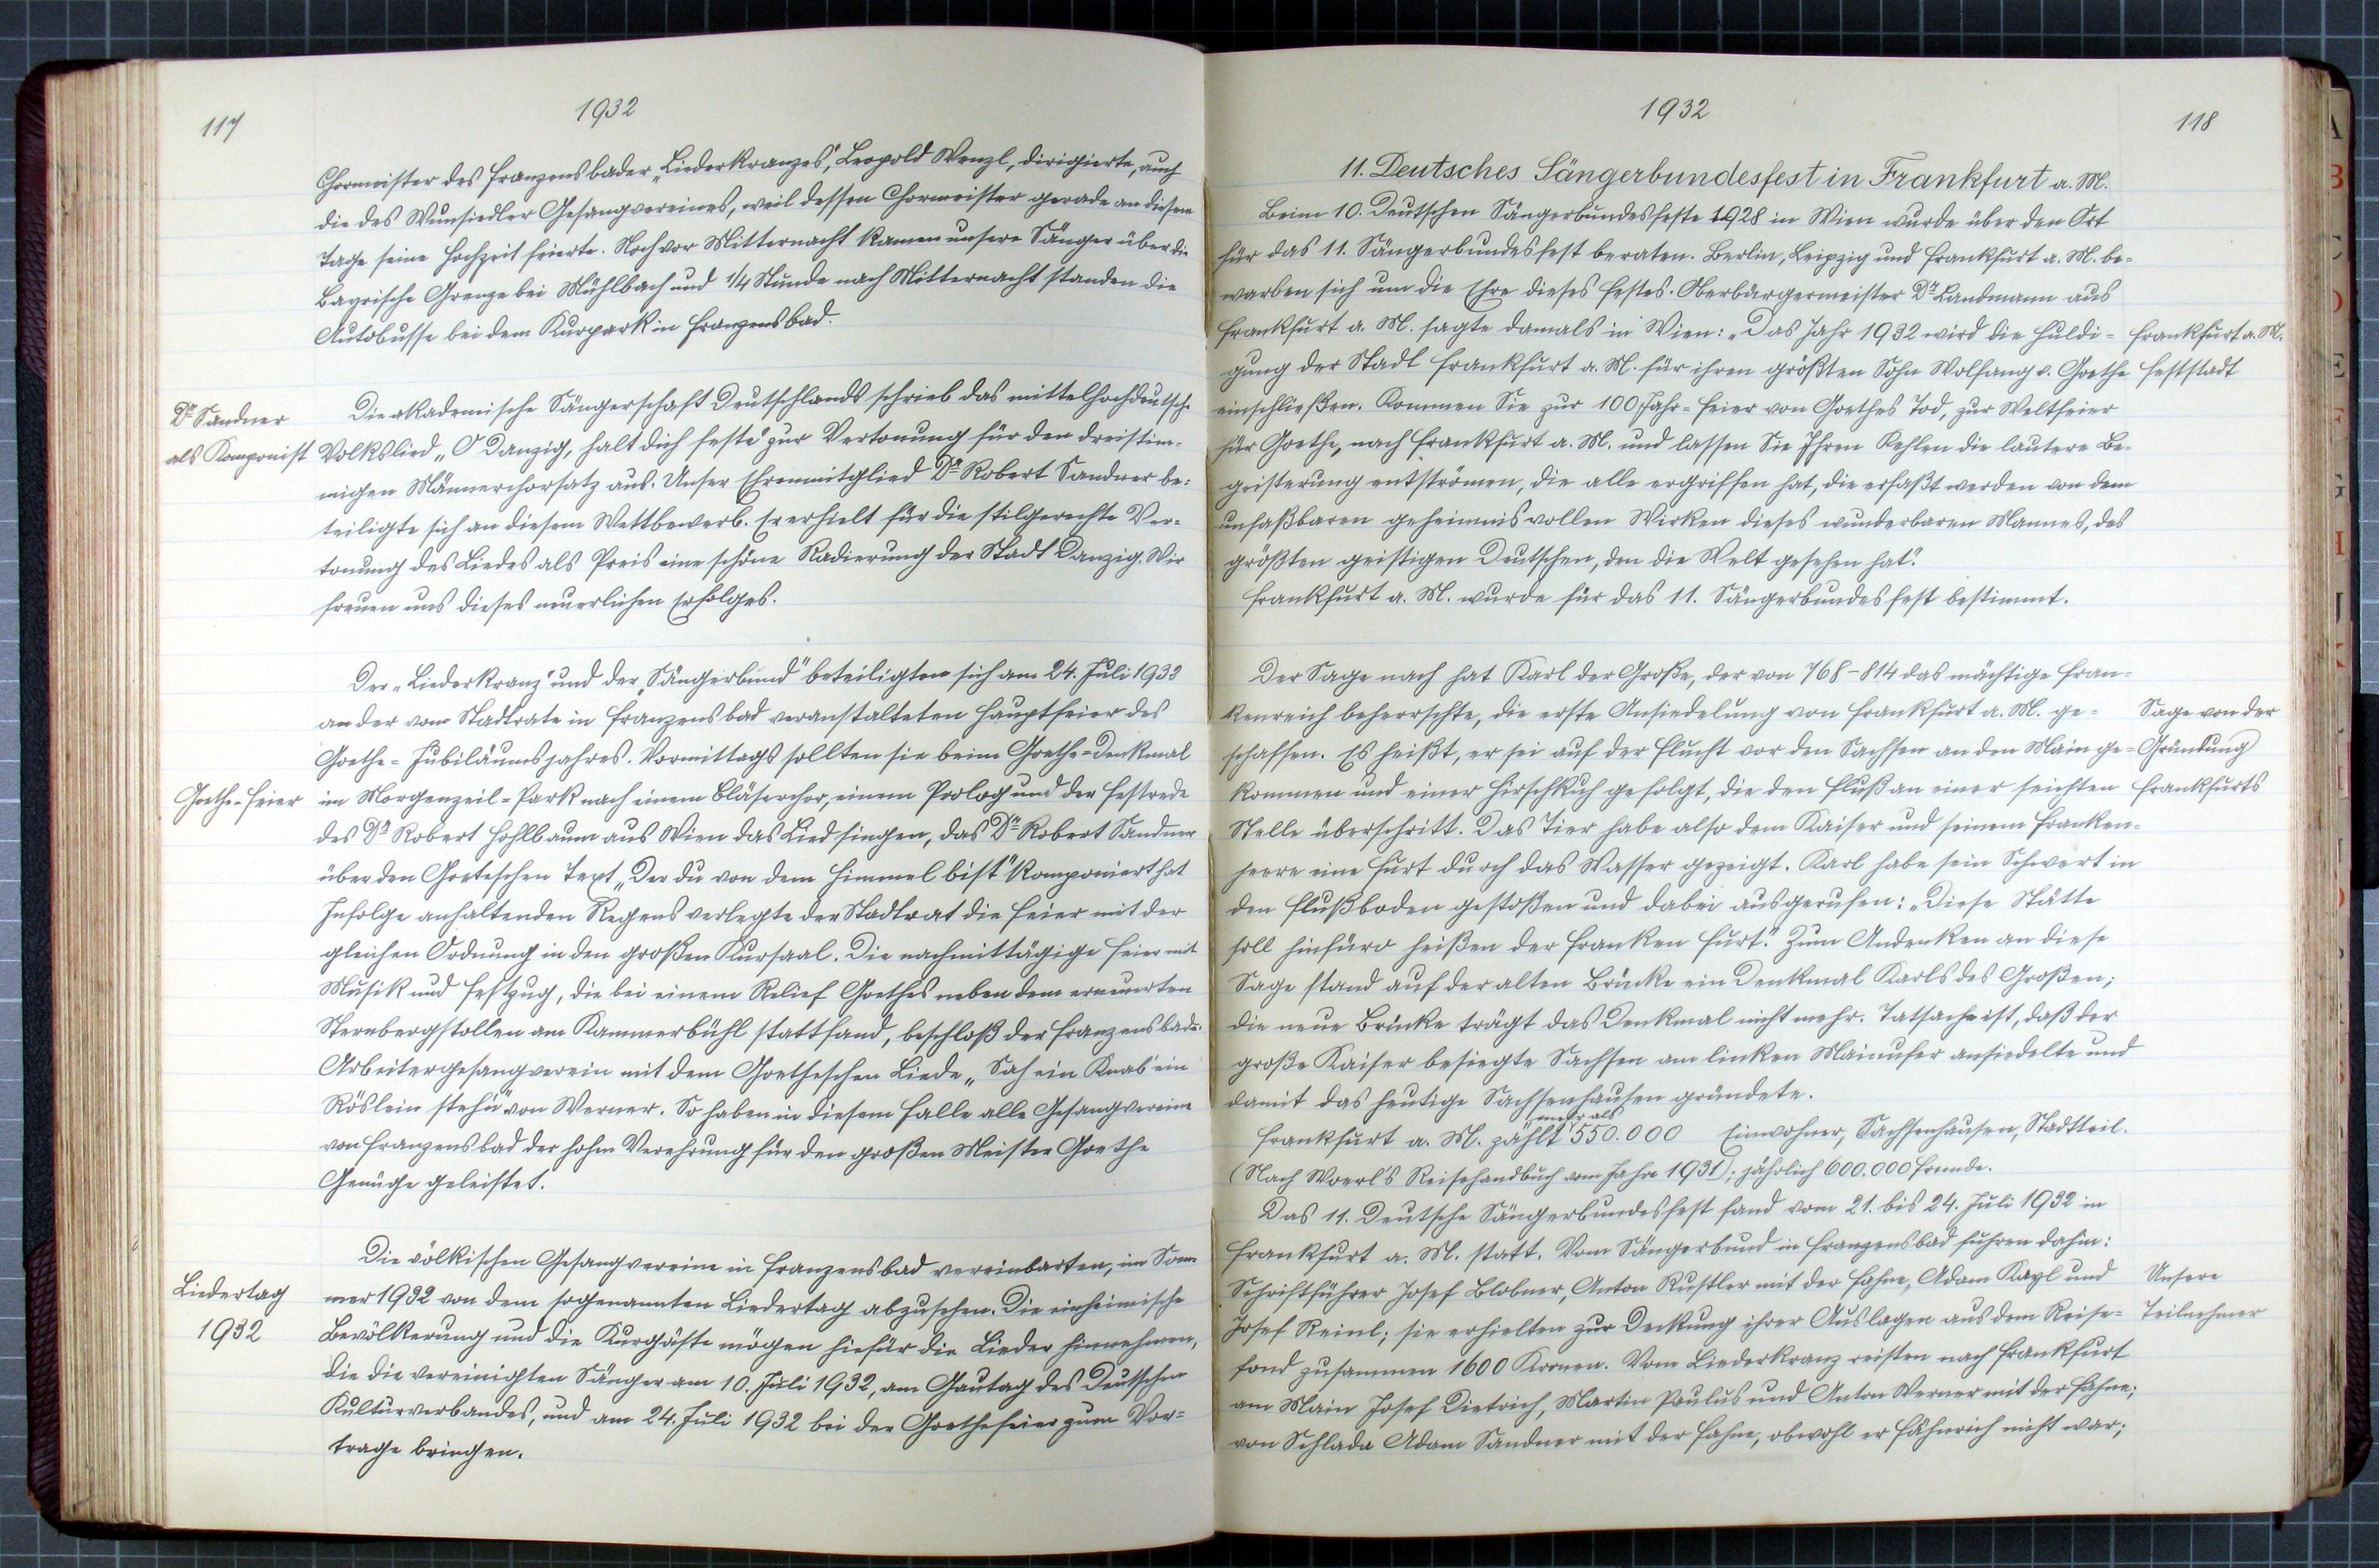 117
1932
Chormeister des Franzensbader „Liederkranzes", Leopold Wenzl, dirigierte, auch
die des Wunsiedler Gesangvereines, weil dessen Chormeister gerade an diesem
Tage seine Hochzeit feierte. Noch vor Mitternacht kamen unsere Sänger über die
Bayrische Grenze bei Mühlbach und 1/4 Stunde nach Mitternacht standen die
Autobusse bei dem Kurpark in Franzensbad.
Dr Sandner
als Komponist
Die akademische Sängerschaft Deutschlands schrieb das mittelhochdeutsche
Volkslied „O Danzig, halt dich feste" zur Vertonung für den dreistim-
migen Männerchorsatz aus. Unser Ehrenmitglied Dr Robert Sandner be-
teiligte sich an diesem Wettbewerb. Er erhielt für die stilgerechte Ver-
tonung des Liedes als Preis eine schöne Radierung der Stadt Danzig. Wir
freuen uns dieses neuerlichen Erfolges.
Goethe-Feier
Der „Liederkranz" und der „Sängerbund" beteiligten sich am 24. Juli 1932
an der vom Stadtrate in Franzensbad veranstalteten Hauptfeier des
Goethe-Jubiläumsjahres. Vormittags sollten sie beim Goethe-Denkmal
im Morgenzeil-Park nach einem Bläserchor, einem Prolog und der Festrede
des Dr Robert Hohlbaum aus Wien das Lied singen, das Dr Robert Sandner
über den Goeteschen Text „Der du von dem Himmel bist" komponiert hat
Infolge anhaltenden Regens verlegte der Stadtrat die Feier mit der
gleichen Ordnung in den großen Kursaal. Die nachmittägige Feier mit
Musik und Festzug, die bei einem Relief Goethes neben dem erneuerten
Sternbergstollen am Kammerbühl stattfand, beschloß der Franzensbader
Arbeitergesangverein mit dem Goetheschen Liede „Sah ein Knab' ein
Röslein stehn" von Werner. So haben in diesem Falle alle Gesangvereine
von Franzensbad der hohen Verehrung für den großen Meister Goethe
Genüge geleistet.
Liedertag
1932
Die völkischen Gesangvereine in Franzensbad vereinbarten, im Som-
mer 1932 von dem sogenannten Liedertag abzusehen. Die einheimische
Bevölkerung und die Kurgäste mögen hiefür die Lieder hinnehmen,
die die vereinigten Sänger am 10. Juli 1932, am Gautag des Deutschen
Kulturverbandes, und am 24. Juli 1932 bei der Goethefeier zum Vor-
trage bringen.
1932
118
11. Deutsches Sängerbundesfest in Frankfurt a. M.
Beim 10. Deutschen Sängerbundesfeste 1928 in Wien wurde über den Ort
für das 11. Sängerbundesfest beraten. Berlin, Leipzig und Frankfurt a. M. be-
warben sich um die Ehre dieses Festes. Oberbürgermeister Dr Landmann aus
Frankfurt a. M. sagte damals in Wien: „Das Jahr 1932 wird die Huldi-
gung der Stadt Frankfurt a. M. für ihren größten Sohn Wolfang v. Goethe
einschließen. Kommen Sie zur 100 Jahr-Feier von Goethes Tod, zur Weltfeier
für Goethe, nach Frankfurt a. M. und lassen Sie Ihren Kehlen die lautere Be-
geisterung entströmen, die alle ergriffen hat, die erfaßt werden von dem
unfaßbaren geheimnisvollen Wirken dieses wunderbaren Mannes, des
größten geistigen Deutschen, den die Welt gesehen hat."
Frankfurt a. M. wurde für das 11. Sängerbundesfest bestimmt.
Frankfurt a. M.
Feststadt
Der Sage nach hat Karl der Große, der von 768-814 das mächtige Fran-
kenreich beherrschte, die erste Ansiedelung von Frankfurt a. M. ge-
schaffen. Es heißt, er sei auf der Flucht vor den Sachsen an den Main ge-
kommen und einer Hirschkuh gefolgt, die den Fluß an einer seichten
Stelle überschritt. Das Tier habe also dem Kaiser und seinem Franken-
heere eine Furt durch das Wasser gezeigt. Karl habe sein Schwert in
den Flußboden gestoßen und dabei ausgerufen: „Diese Stätte
soll hinfüro heißen der Franken Furt." Zum Andenken an diese
Sage stand auf der alten Brücke ein Denkmal Karls des Großen;
die neue Brücke trägt das Denkmal nicht mehr. Tatsache ist, daß der
große Kaiser besiegte Sachsen am linken Mainufer ansiedelte und
damit das heutige Sachsenhausen gründete.
Sage von der
Gründung
Frankfurts
mehr als
Frankfurt a. M. zählt 550.000 Einwohner, Sachsenhausen, Stadtteil.
(Nach Woerl's Reisehandbuch vom Jahre 1931); jährlich 600.000 Fremde.
Das 11. Deutsche Sängerbundesfest fand vom 21. bis 24. Juli 1932 in
Frankfurt a. M. statt. Vom Sängerbund in Franzensbad fuhren dahin:
Schriftführer Josef Blobner, Anton Rustler mit der Fahne, Adam Kayl und
Josef Reinl; sie erhielten zur Deckung ihrer Auslagen aus dem Reise-
fond zusammen 1600 Kronen. Vom Liederkranz reisten nach Frankfurt
am Main Josef Dietrich, Martin Paulus und Anton Werner mit der Fahne;
von Schlada Adam Sandner mit der Fahne, obwohl er Fähnrich nicht war;
Unsere
Teilnehmer